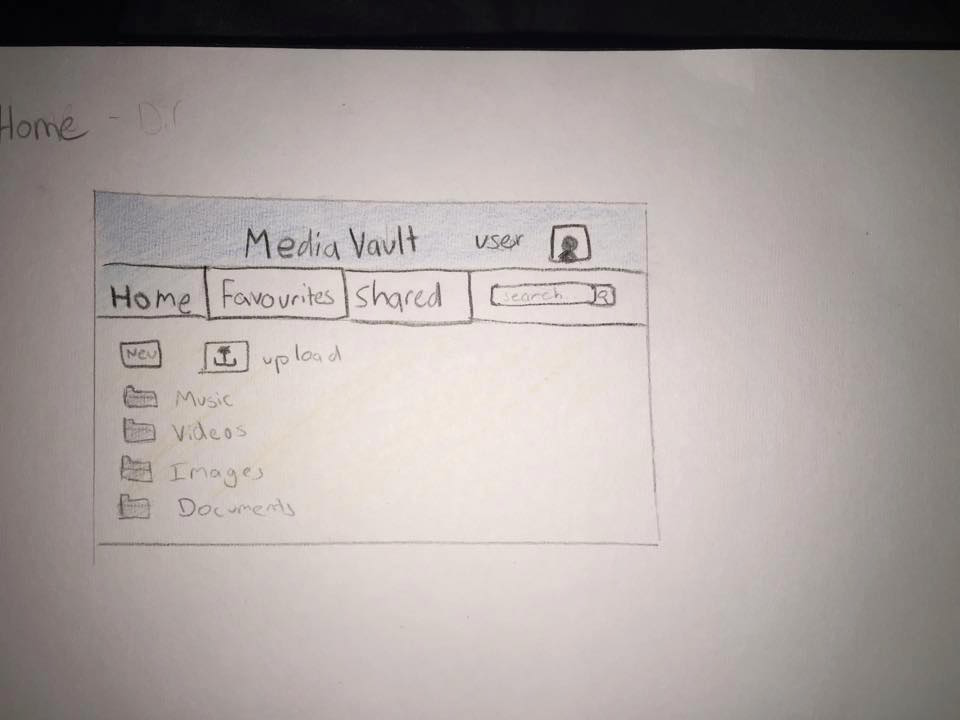 Home -
Media Vault user
Home Favourites Shared search
New upload
Music
Videos
Images
Documents